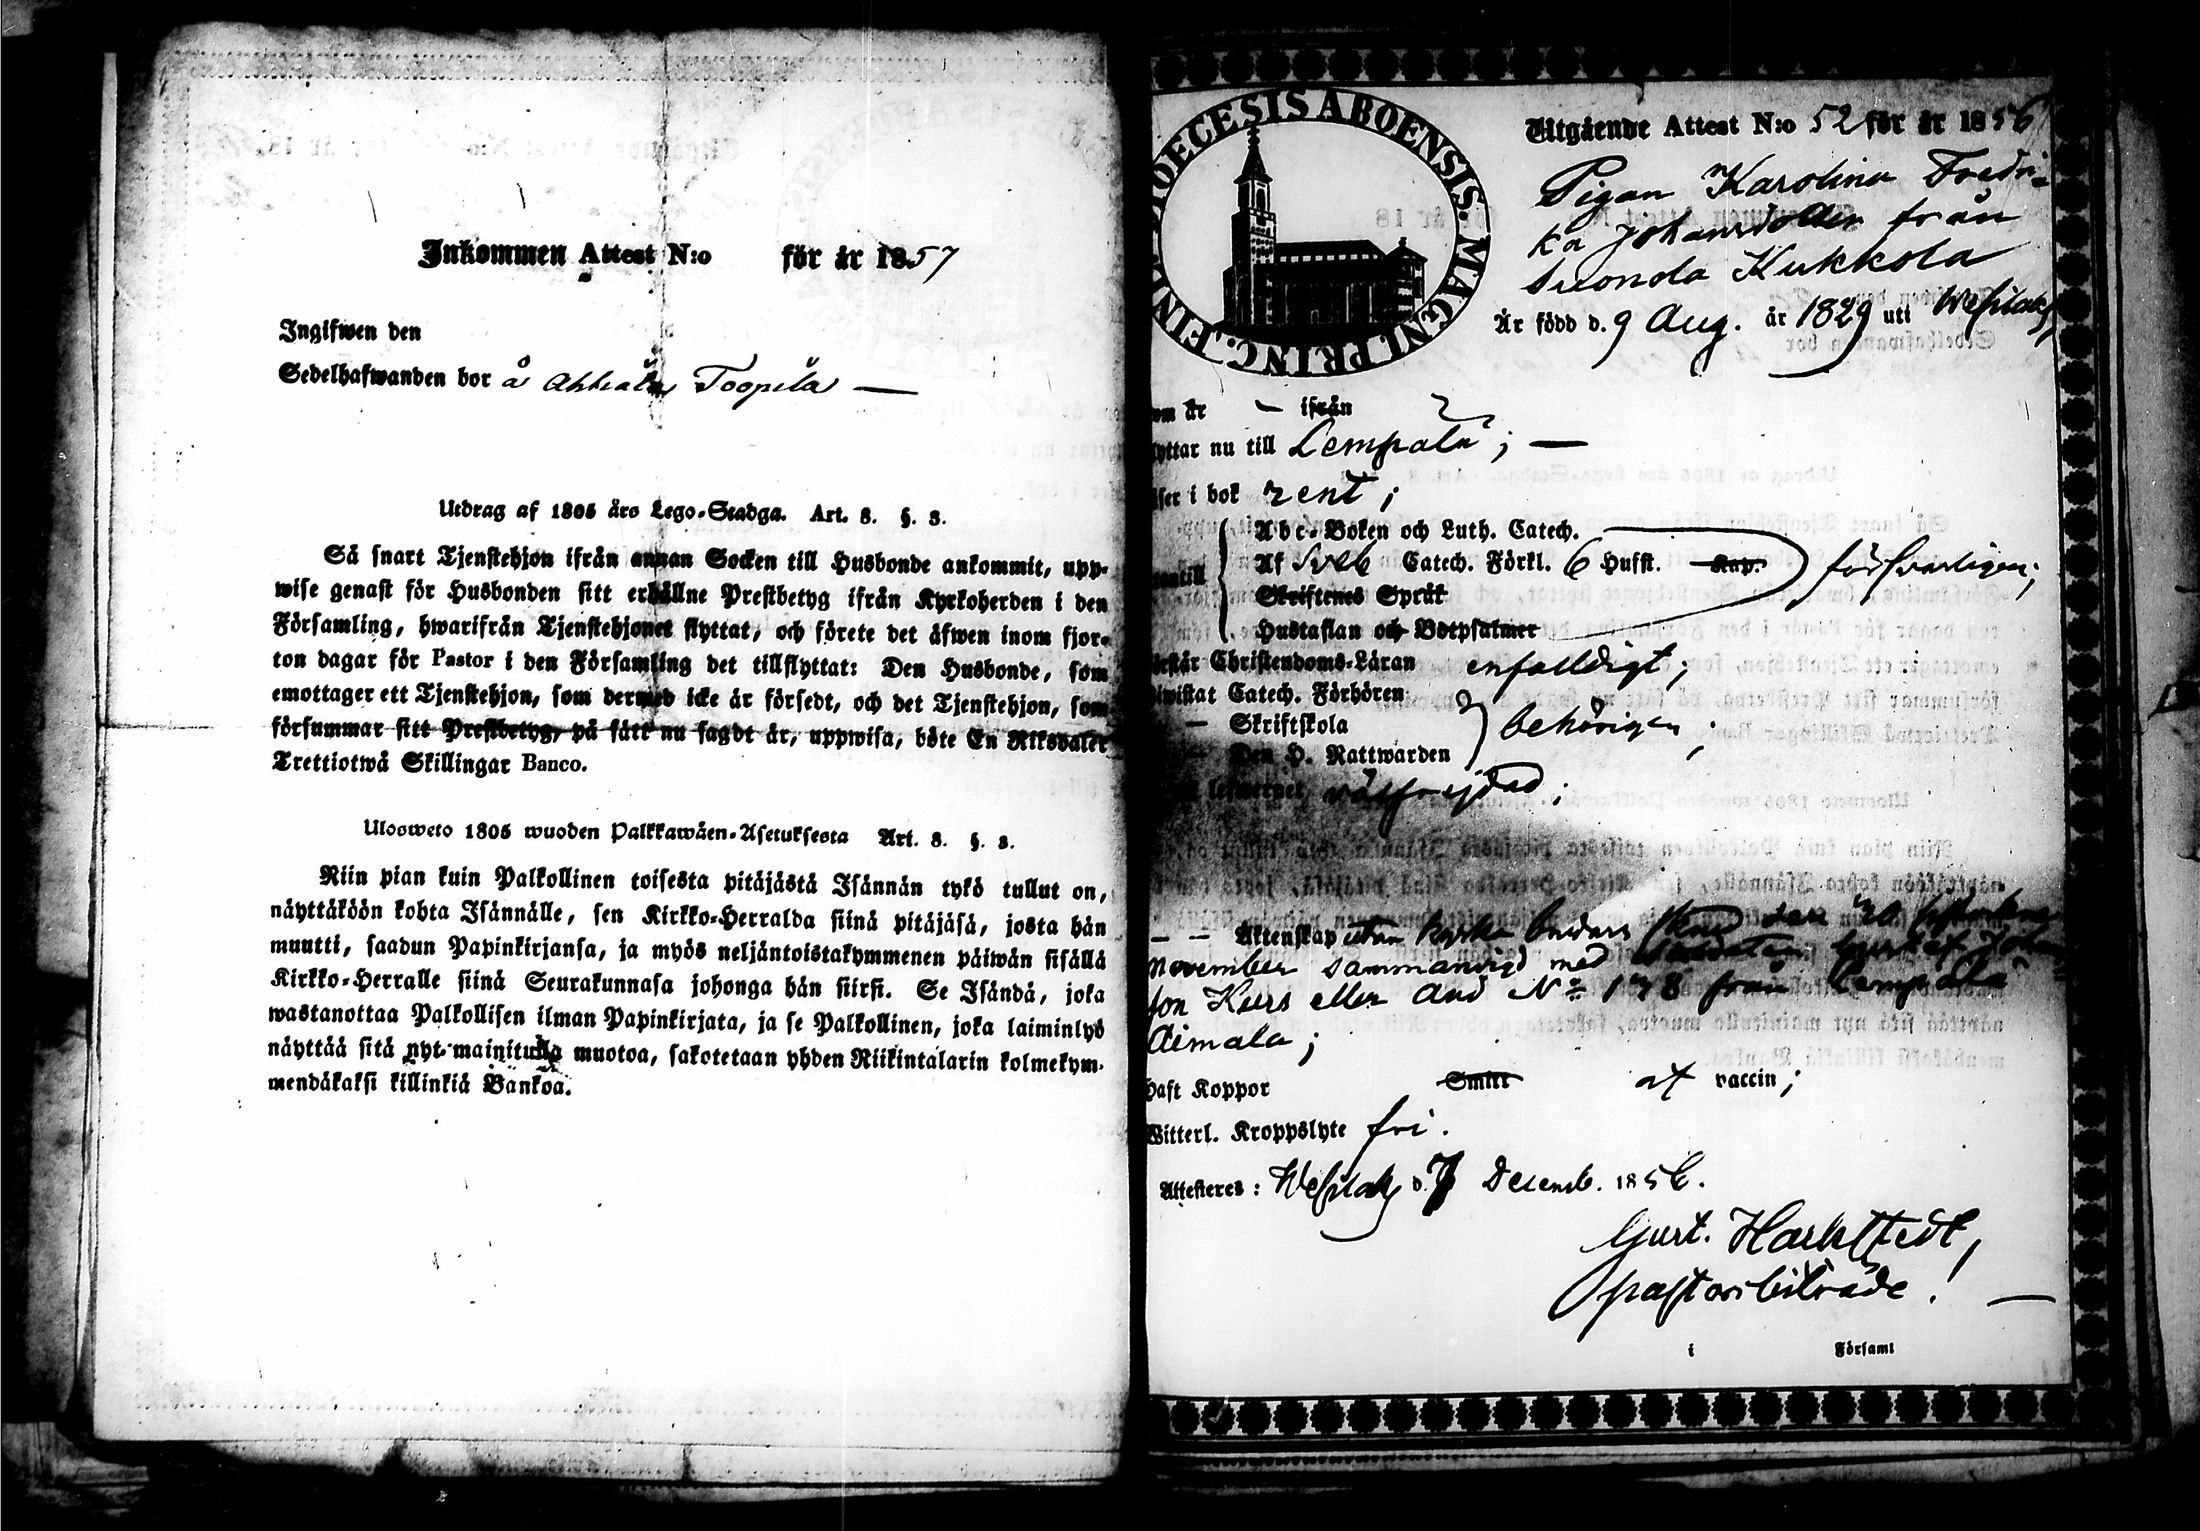 Inkommen Attest N:o för år 1857
Ingifwen den
Sedelhafwanden bor å Toopila —
Utdrag af 1805 års Lego-Stadga. Art. 8. §. 3.
Så snart Tjenstehjon ifrån annan Socken till Husbonde ankommit, upp-
wise genast för Husbonden sitt erhållne Prestbetyg ifrån Kyrkoherden i den
Församling, hwarifrån Tjenstehjonet flyttat, och förete det äfwen inom fjor-
ton dagar för Pastor i den Församling det tillflyttat: Den Husbonde, som
emottager ett Tjenstehjon, som dermed icke är försedt, och det Tjenstehjon, som
försummar sitt Prestbetyg, på sätt nu sagdt är, uppwisa, böte En Riksdaler
Trettiotwå Skillingar Banco.
Ulosweto 1805 wuoden Palkkawäen-Asetuksesta Art. 8. §. 3.
Niin pian kuin Palkollinen toisesta pitäjästä Isännän tykö tullut on,
näyttäköön kohta Isännälle, sen Kirkko-Herralda siinä pitäjäsä, josta hän
muutti, saadun Papinkirjansa, ja myös neljäntoistakymmenen päiwän sisällä
Kirkko-Herralle siinä Seurakunnasa johonga hän siirsi. Se Isändä, joka
wastanottaa Palkollisen ilman Papinkirjata, ja se Palkollinen, joka laiminlyö
näyttää sitä nyt mainitulla muotoa, sakotetaan yhden Riikintalarin kolmekym-
mendäkaksi killinkiä Bankoa.
DIOECESIS ABOENSIS. MAGNI PRINC. FIN
Utgående Attest N:o 52 för år 1856
Pigan Karolina Fredri-
ka Johansdotter från
Suonola Kukkola
Är född d. 9 Aug. år 1829 uti Wesilaks
om år — ifrån
yttar nu till Lempälä; —
ser i bok rent;
Abc-Boken och Luth. Catech.
Af Sveb Catech. Förkl. 6 Hufst. Kap. försvarligen;
Skriftenes Språk
Hustaflan och Botpsalmer
rstår Christendoms-Läran enfaldigt;
iwistat Catech. Förhören
— Skriftskola behörigen;
— Den H. Nattwarden
lefwernet välfrejdad;
— — Äktenskap utan kyrko den 20
november sammanvigd med soldaten Gustaf Johans
son Kurs eller And No 178 från Lempälä
Aimala;
haft Koppor Smitt af vaccin;
Witterl. Kroppslyte fri.
Attesteres: Wesilaks d. 7 Decemb. 1856.
Gust. Harkstedt,
pastorsbiträde.
i Församl